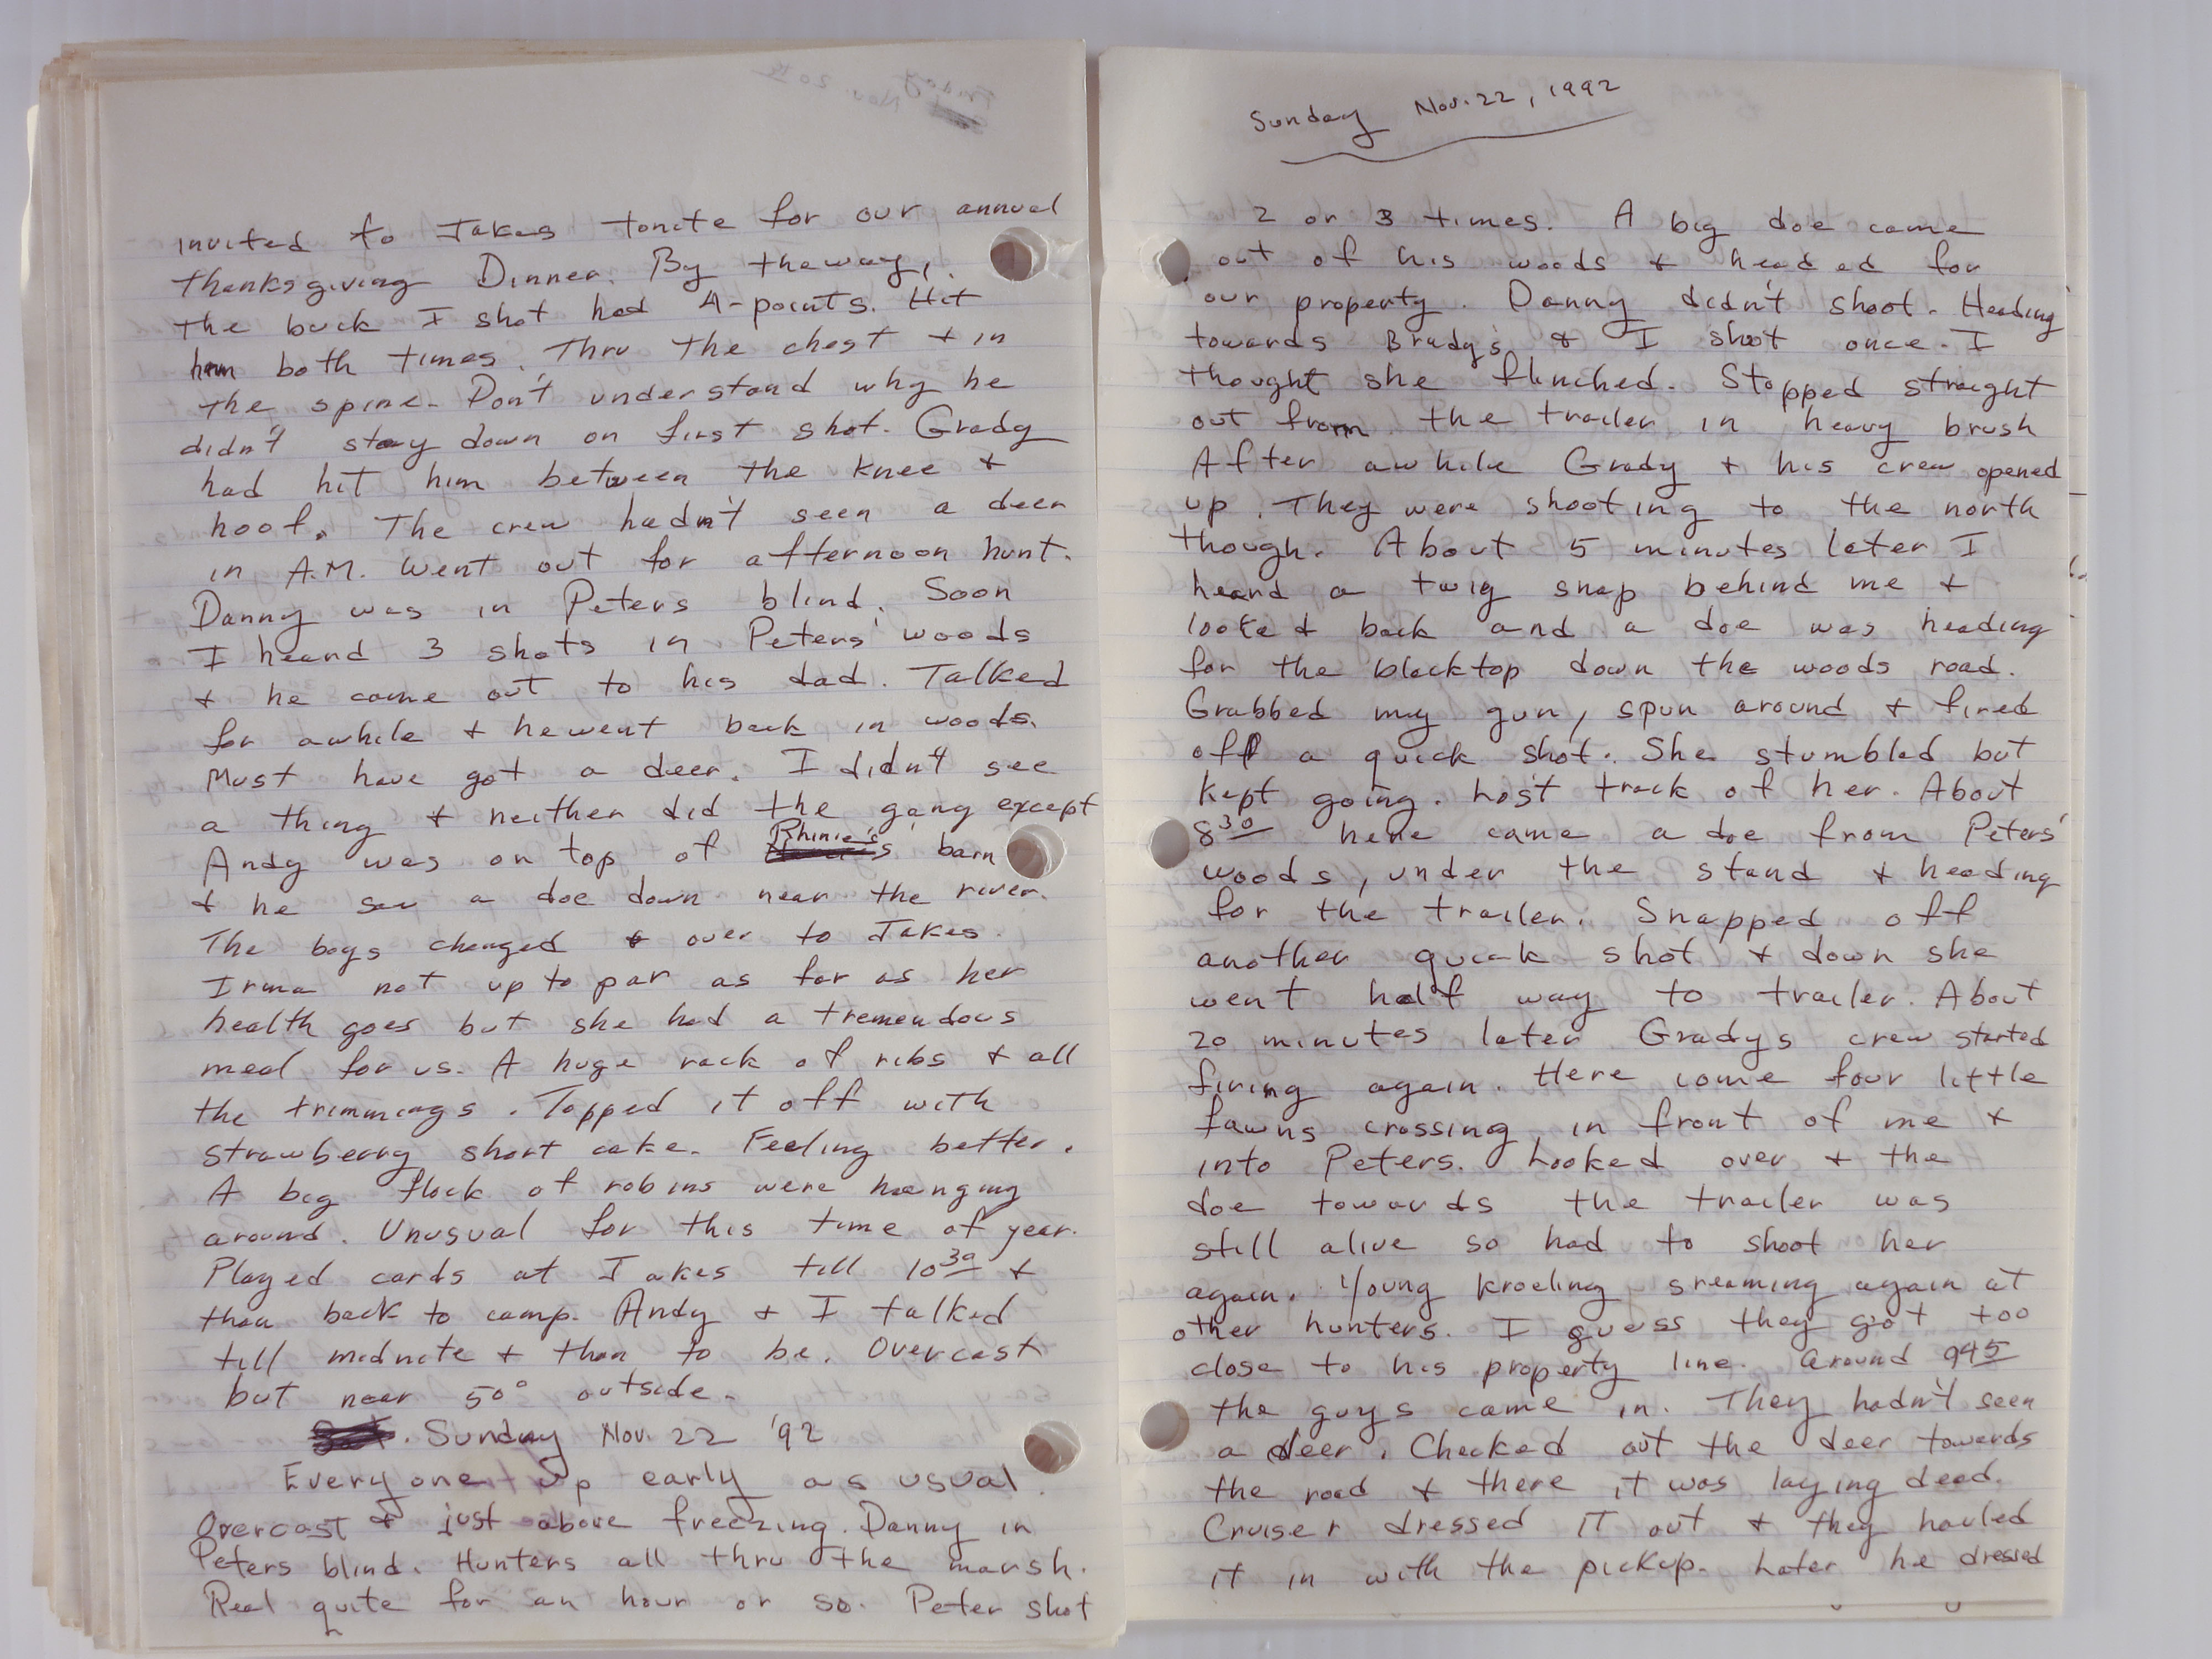 invited to Jakes tonite for our annual
thanksgiving Dinner. By the way,
the buck I shot had 4-points. Hit
him both times. Thru the chest + in
the spine. Don't understand why he
didn't stay down on first shot. Grady
had hit him between the knee +
hoof. The crew hadn't seen a deer
in A.M. Went out for afternoon hunt.
Danny was in Peters blind. Soon
I heard 3 shots in Peters' woods
+ he came out to his dad. Talked
for awhile + he went back in woods.
Must have got a deer. I didn't see
a thing + neither did the gang except
Andy was on top of Rhinie's barn
+ he saw a doe down near the river.
The boys changed + over to Jakes.
Irma not up to par as far as her
health goes but she had a tremendous
meal for us. A huge rack of ribs + all
the trimmings. Topped it off with
strawberry short cake. Feeling better.
A big flock of robins were hanging
around. Unusual for this time of year.
Played cards at Jakes till 10 30 +
then back to camp. Andy + I talked
till midnite + then to be. Overcast
but near 50° outside.
Sunday Nov. 22 '92
Everyone up early as usual.
Overcast + just above freezing. Danny in
Peters blind. Hunters all thru the marsh.
Real quite for an hour or so. Peter shot
Sunday Nov. 22, 1992
2 or 3 times. A big doe came
out of his woods + headed for
our property. Danny didn't shoot. Heading
towards Brady's + I shot once. I
thought she flinched. Stopped straight
out from the trailer in heavy brush
After awhile Grady + his crew opened
up. They were shooting to the north
though. About 5 minutes later I
heard a twig snap behind me +
looked back and a doe was heading
for the blacktop down the woods road.
Grabbed my gun, spun around + fired
off a quick shot. She stumbled but
kept going. Lost track of her. About
8 30 here came a doe from Peters'
woods, under the stand + heading
for the trailer. Snapped off
another quick shot + down she
went half way to trailer. About
20 minutes later Gradys crew started
firing again. Here come four little
fawns crossing in front of me +
into Peters. Looked over + the
doe towards the trailer was
still alive so had to shoot her
again. Young Kroeling sreaming again at
other hunters. I guess they got too
close to his property line. Around 9 45
the guys came in. They hadn't seen
a deer. Checked out the deer towards
the road + there it was laying dead.
Cruiser dressed it out + they hauled
it in with the pickup. Later he dressed